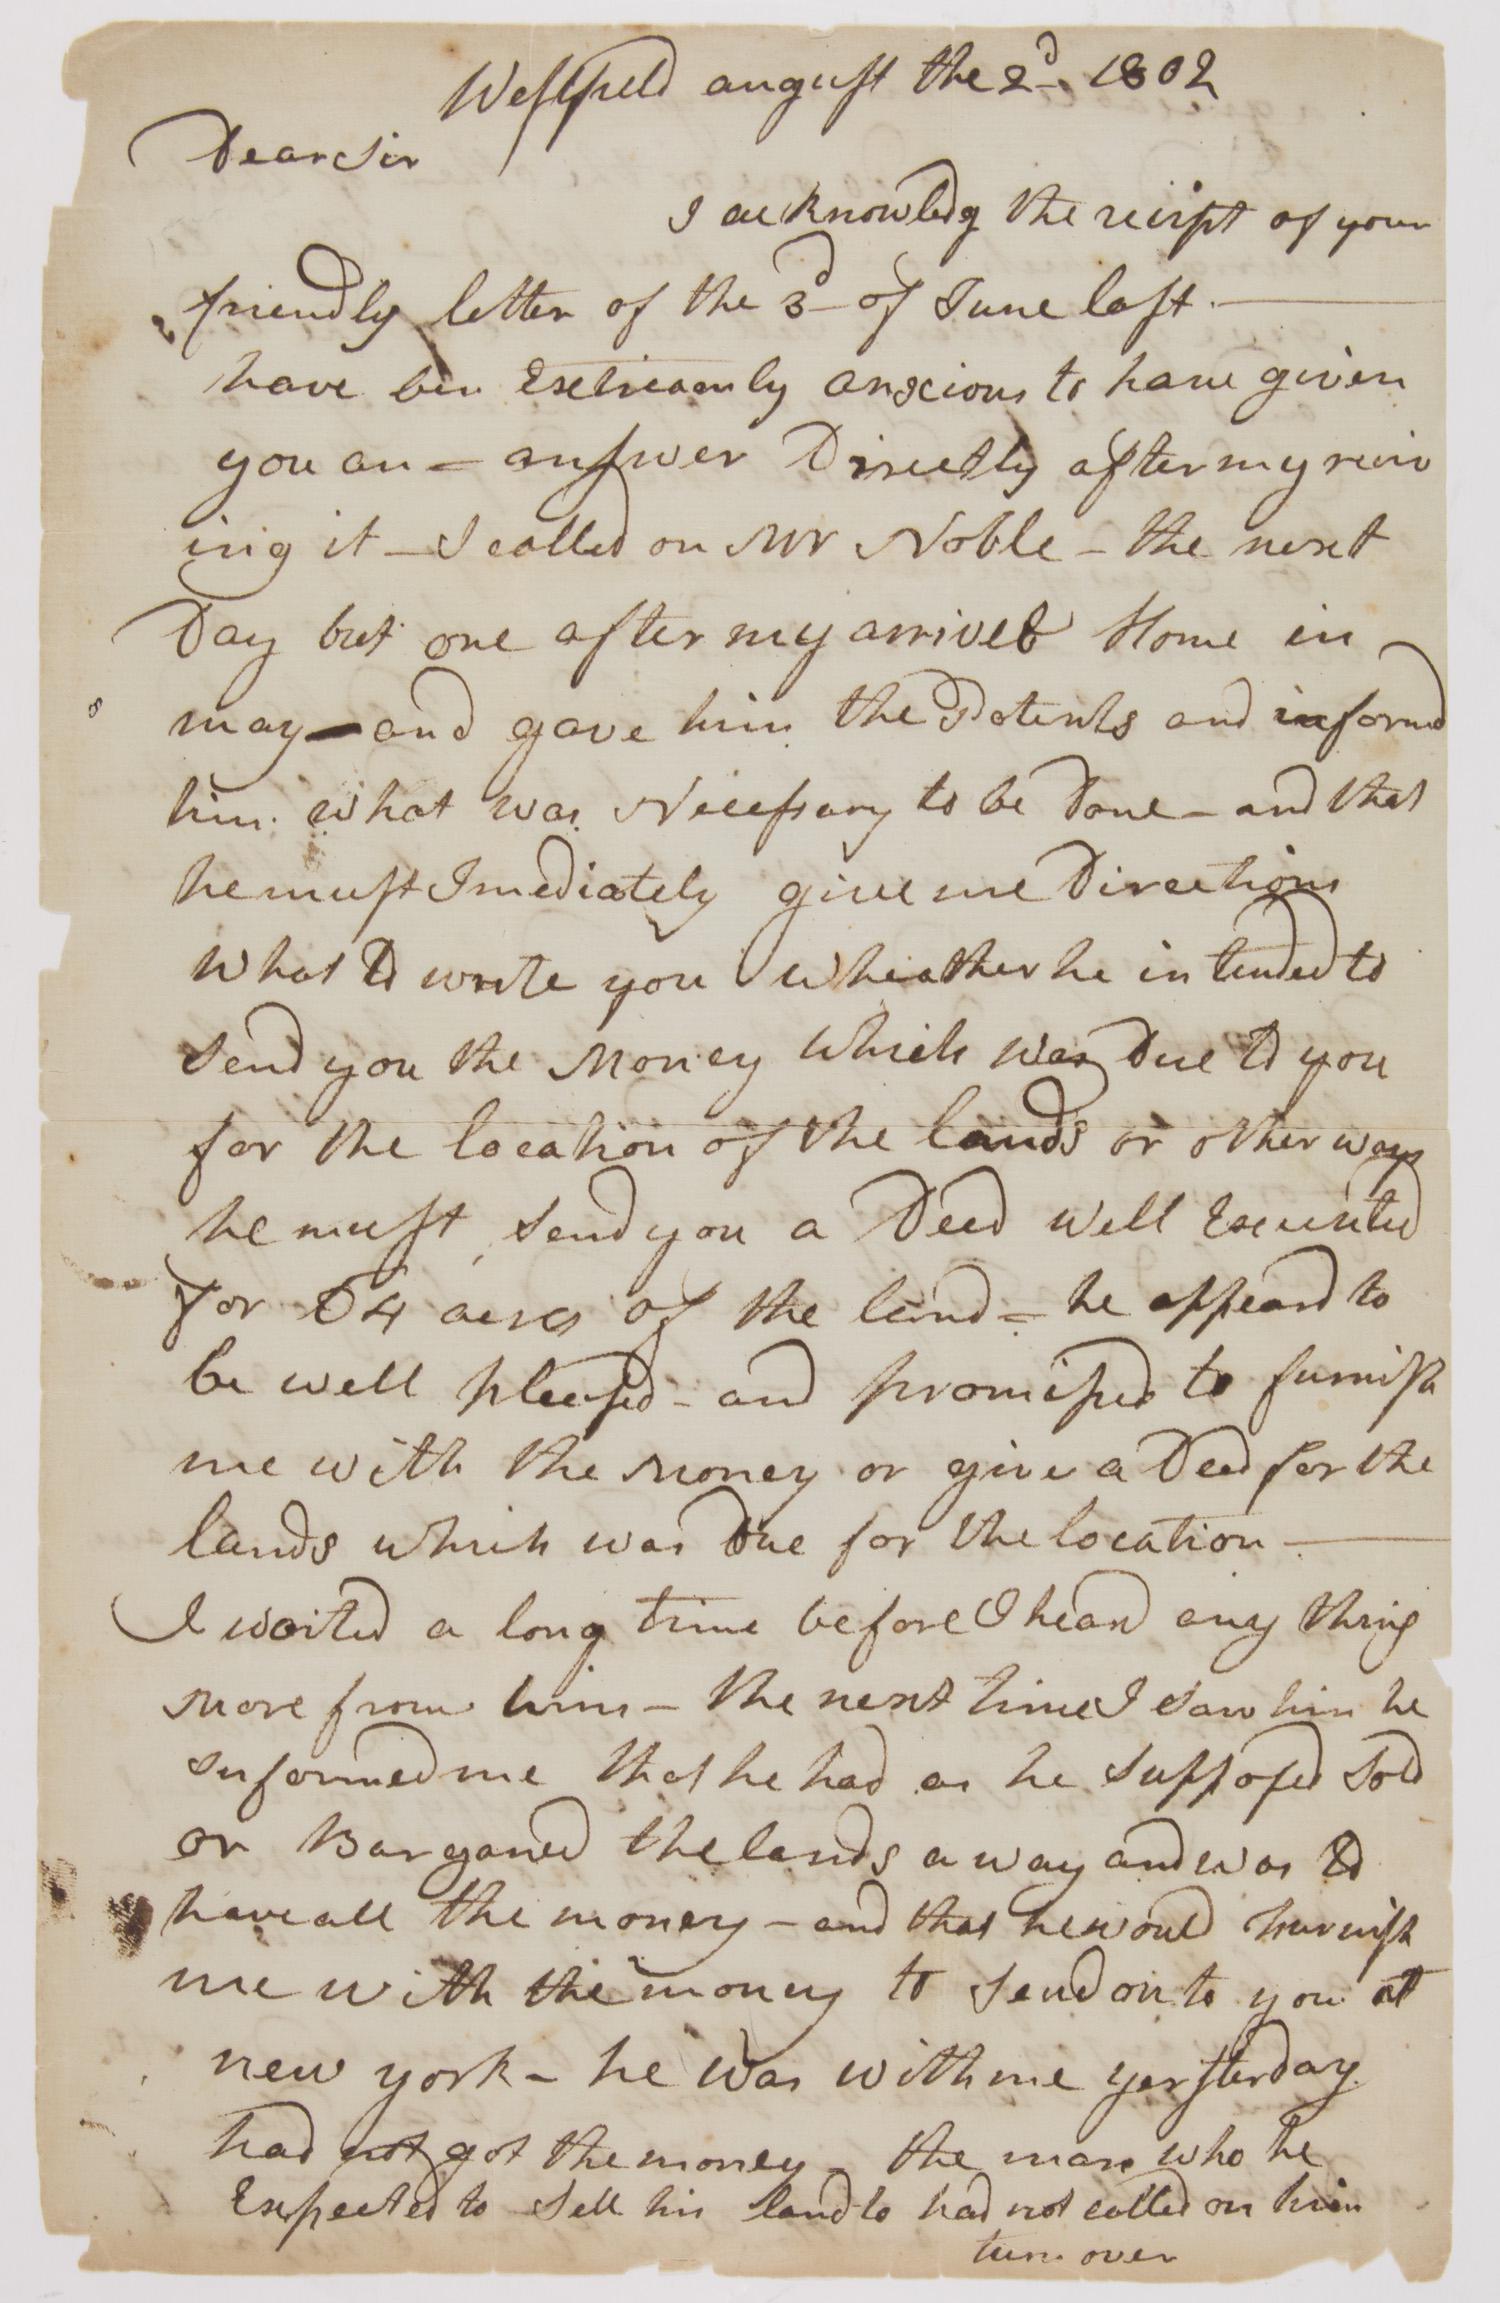 Westfield august the 2d. 1802
Dear Sir
I acknowledg the reciept of your
friendly letter of the 3d of June last.
have ben Extreamly anxcious to have given
you an answer Directly after my reciv
ing it - I called on Mr Noble - the next
Day but one after my arrivel Home in
may - and gave him the Patents and informd
him what was Necessary to be Done - and that
he must Imediately give me Directions
What to write you Wheather he intended to
Send you the Money Which was Due to you
for the location of the lands or otherways
he must Send you a Deed Well Executed
for 64 acres of the land = he appeard to
be well pleased - and promised to furnish
me with the Money or give a Deed for the
lands which was Due for the location -
I waited a long time before I heard any thing
More from him - the next time I Saw him he
Informed me that he had as he Supposed Sold
or Barganed the lands a way and was to
have all the money - and that he would furnish
me with the money to Send on to you at
new york - he was with me yersterday
had not got the money - the man who he
Expected to Sell his land to had not called on him
turn over